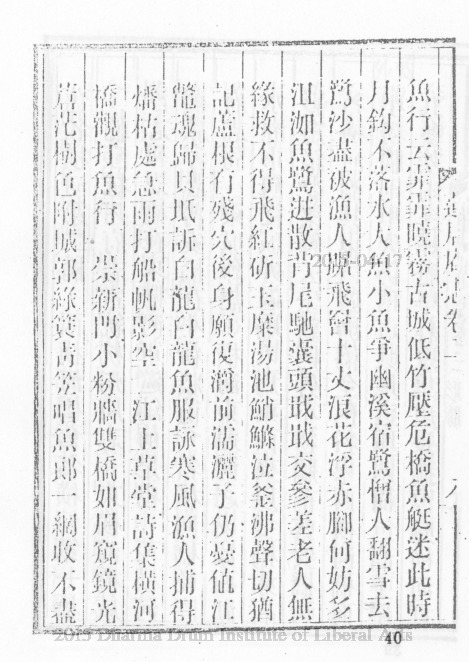 魚行云霏霏曉霧古城低竹壓危橋魚艇迷此時
月鈎不落水大魚小魚爭幽溪宿鷺憎人翻雪去
鴛沙盡被漁人躡飛罾十丈浪花浮赤腳何妨多
沮洳魚鷺迸散背尾馳囊頭戢戢交參差老人無
緣救不得飛紅斫玉糜湯池鮹鰷泣釜沸聲切猶
記蘆根有殘穴後身願復溮前濡灑了仍憂値江
籠魂歸貝坻訴白龍白龍魚服詠寒風漁人捕得
燔枯處急雨打船帆影空 江上草堂詩集橫河
橋觀打魚行 崇新門小粉牆雙橋如眉窺鏡光
蒼茫樹色附城郭綠簑靑笠唱魚郎一網收不盡
卷二
40
2013 Dharma Drum Institute of Liberal Arts